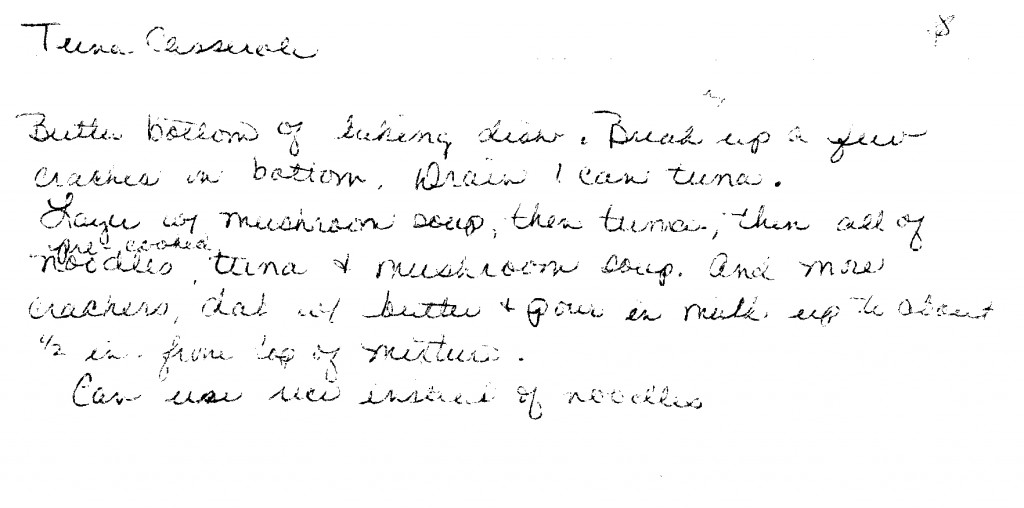 Tuna Casserole
8
Butter bottom of baking dish. Break up a few
crackers in bottom. Drain 1 can tuna.
Layer w/ mushroom soup, then tuna, then all of
pre-cooked
noodles, tuna & mushroom soup. Add more
crackers, dab w/ butter & pour in milk up to about
1/2 in. from top of mixture.
Can use rice instead of noodles